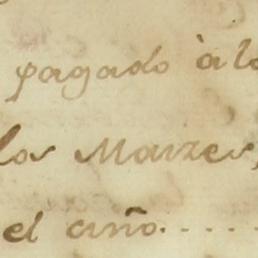 pagado à lo
los Maizes,
el año.....